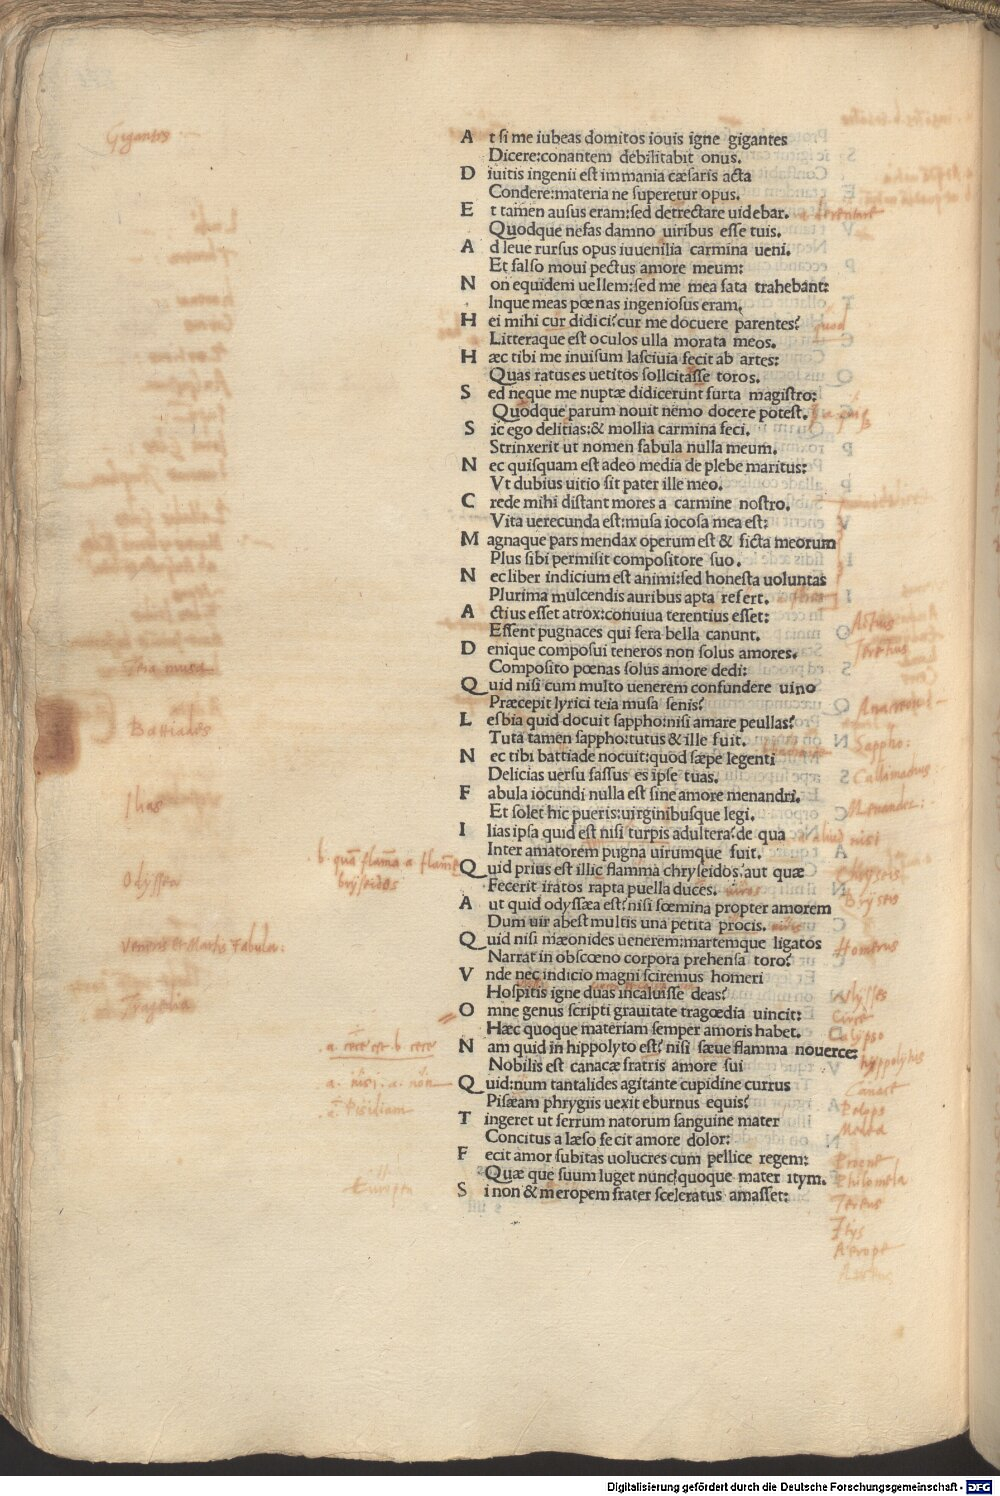 Gigantes
A t si me iubeas domitos iouis igne gigantes
Dicere:conantem debilitabit onus.
D iuitis ingenii est immania cæsaris acta
Condere:materia ne superetur opus.
E t tamen ausus eram:sed detrectare uidebar.
Quodque nefas damno uiribus esse tuis.
A d leue rursus opus iuuenilia carmina ueni.
Et falso moui pectus amore meum:
N on equidem uellem:sed me mea fata trahebant:
Inque meas pœnas ingeniosus eram.
H ei mihi cur didici?cur me docuere parentes?
Litteraque est oculos ulla morata meos.
H æc tibi me inuisum lasciuia fecit ab artes:
Quas ratus es uetitos sollcitasse toros.
S ed neque me nuptæ didicerunt furta magistro:
Quodque parum nouit nemo docere potest.
S ic ego delitias:& mollia carmina feci.
Strinxerit ut nomen fabula nulla meum.
N ec quisquam est adeo media de plebe maritus:
Vt dubius uitio sit pater ille meo.
C rede mihi distant mores a carmine nostro.
Vita uerecunda est:musa iocosa mea est:
M agnaque pars mendax operum est & ficta meorum
Plus sibi permisit compositore suo.
N ec liber indicium est animi:sed honesta uoluntas
Plurima mulcendis auribus apta refert.
A ctius esset atrox:conuiua terentius esset:
Actius
Essent pugnaces qui fera bella canunt.
D enique composui teneros non solus amores.
Terentius
Composito pœnas solus amore dedi:
Teia musa
Q uid nisi cum multo uenerem confundere uino
Præcepit lyrici teia musa senis?
Anacreon
L esbia quid docuit sappho:nisi amare peullas?
Battiades
Tuta tamen sappho:tutus & ille fuit.
Sappho:
N ec tibi battiade nocuit:quod sæpe legenti
Delicias uersu fassus es ipse tuas.
Callimachus
F abula iocundi nulla est sine amore menandri.
Ilias
Et solet hic pueris:uirginibusque legi.
Menander:
I lias ipsa quid est nisi turpis adultera?de qua
a aliud nisi
Inter amatorem pugna uirumque fuit.
b quā flāma a flamma
Q uid prius est illic flamma chryseidos?aut quæ
Chryseis
Odyssea
briseidos
Fecerit iratos rapta puella duces.
Bryseis
A ut quid odyssæa est?nisi fœmina propter amorem
Dum uir abest multis una petita procis.
Veneris et Martis Fabula:
Q uid nisi mæonides uenerem:martemque ligatos
Homerus
Narrat in obscœno corpora prehensa toro?
V nde nec indicio magni sciremus homeri
Hospitis igne duas incaluisse deas?
Ulysses
Tragedia
O mne genus scripti grauitate tragœdia uincit:
Circe
Hæc quoque materiam semper amoris habet.
Calypso
N am quid in hippolyto est? nisi sæue flamma nouerce:
hyppolytus
Nobilis est canacæ fratris amore sui
Q uid:num tantalides agitante cupidine currus
Canace
Pisæam phrygiis uexit eburnus equis?
Pelops
T ingeret ut ferrum natorum sanguine mater
Medea
Concitus a læso fecit amore dolor:
F ecit amor subitas uolucres cum pellice regem:
Progne
Quæ que suum luget nunc quoque mater itym.
Philomela
S i non & meropem frater sceleratus amasset:
Tereus
Itys
Aerope
Digitalisierung gefördert durch die Deutsche Forschungsgemeinschaft - DFG